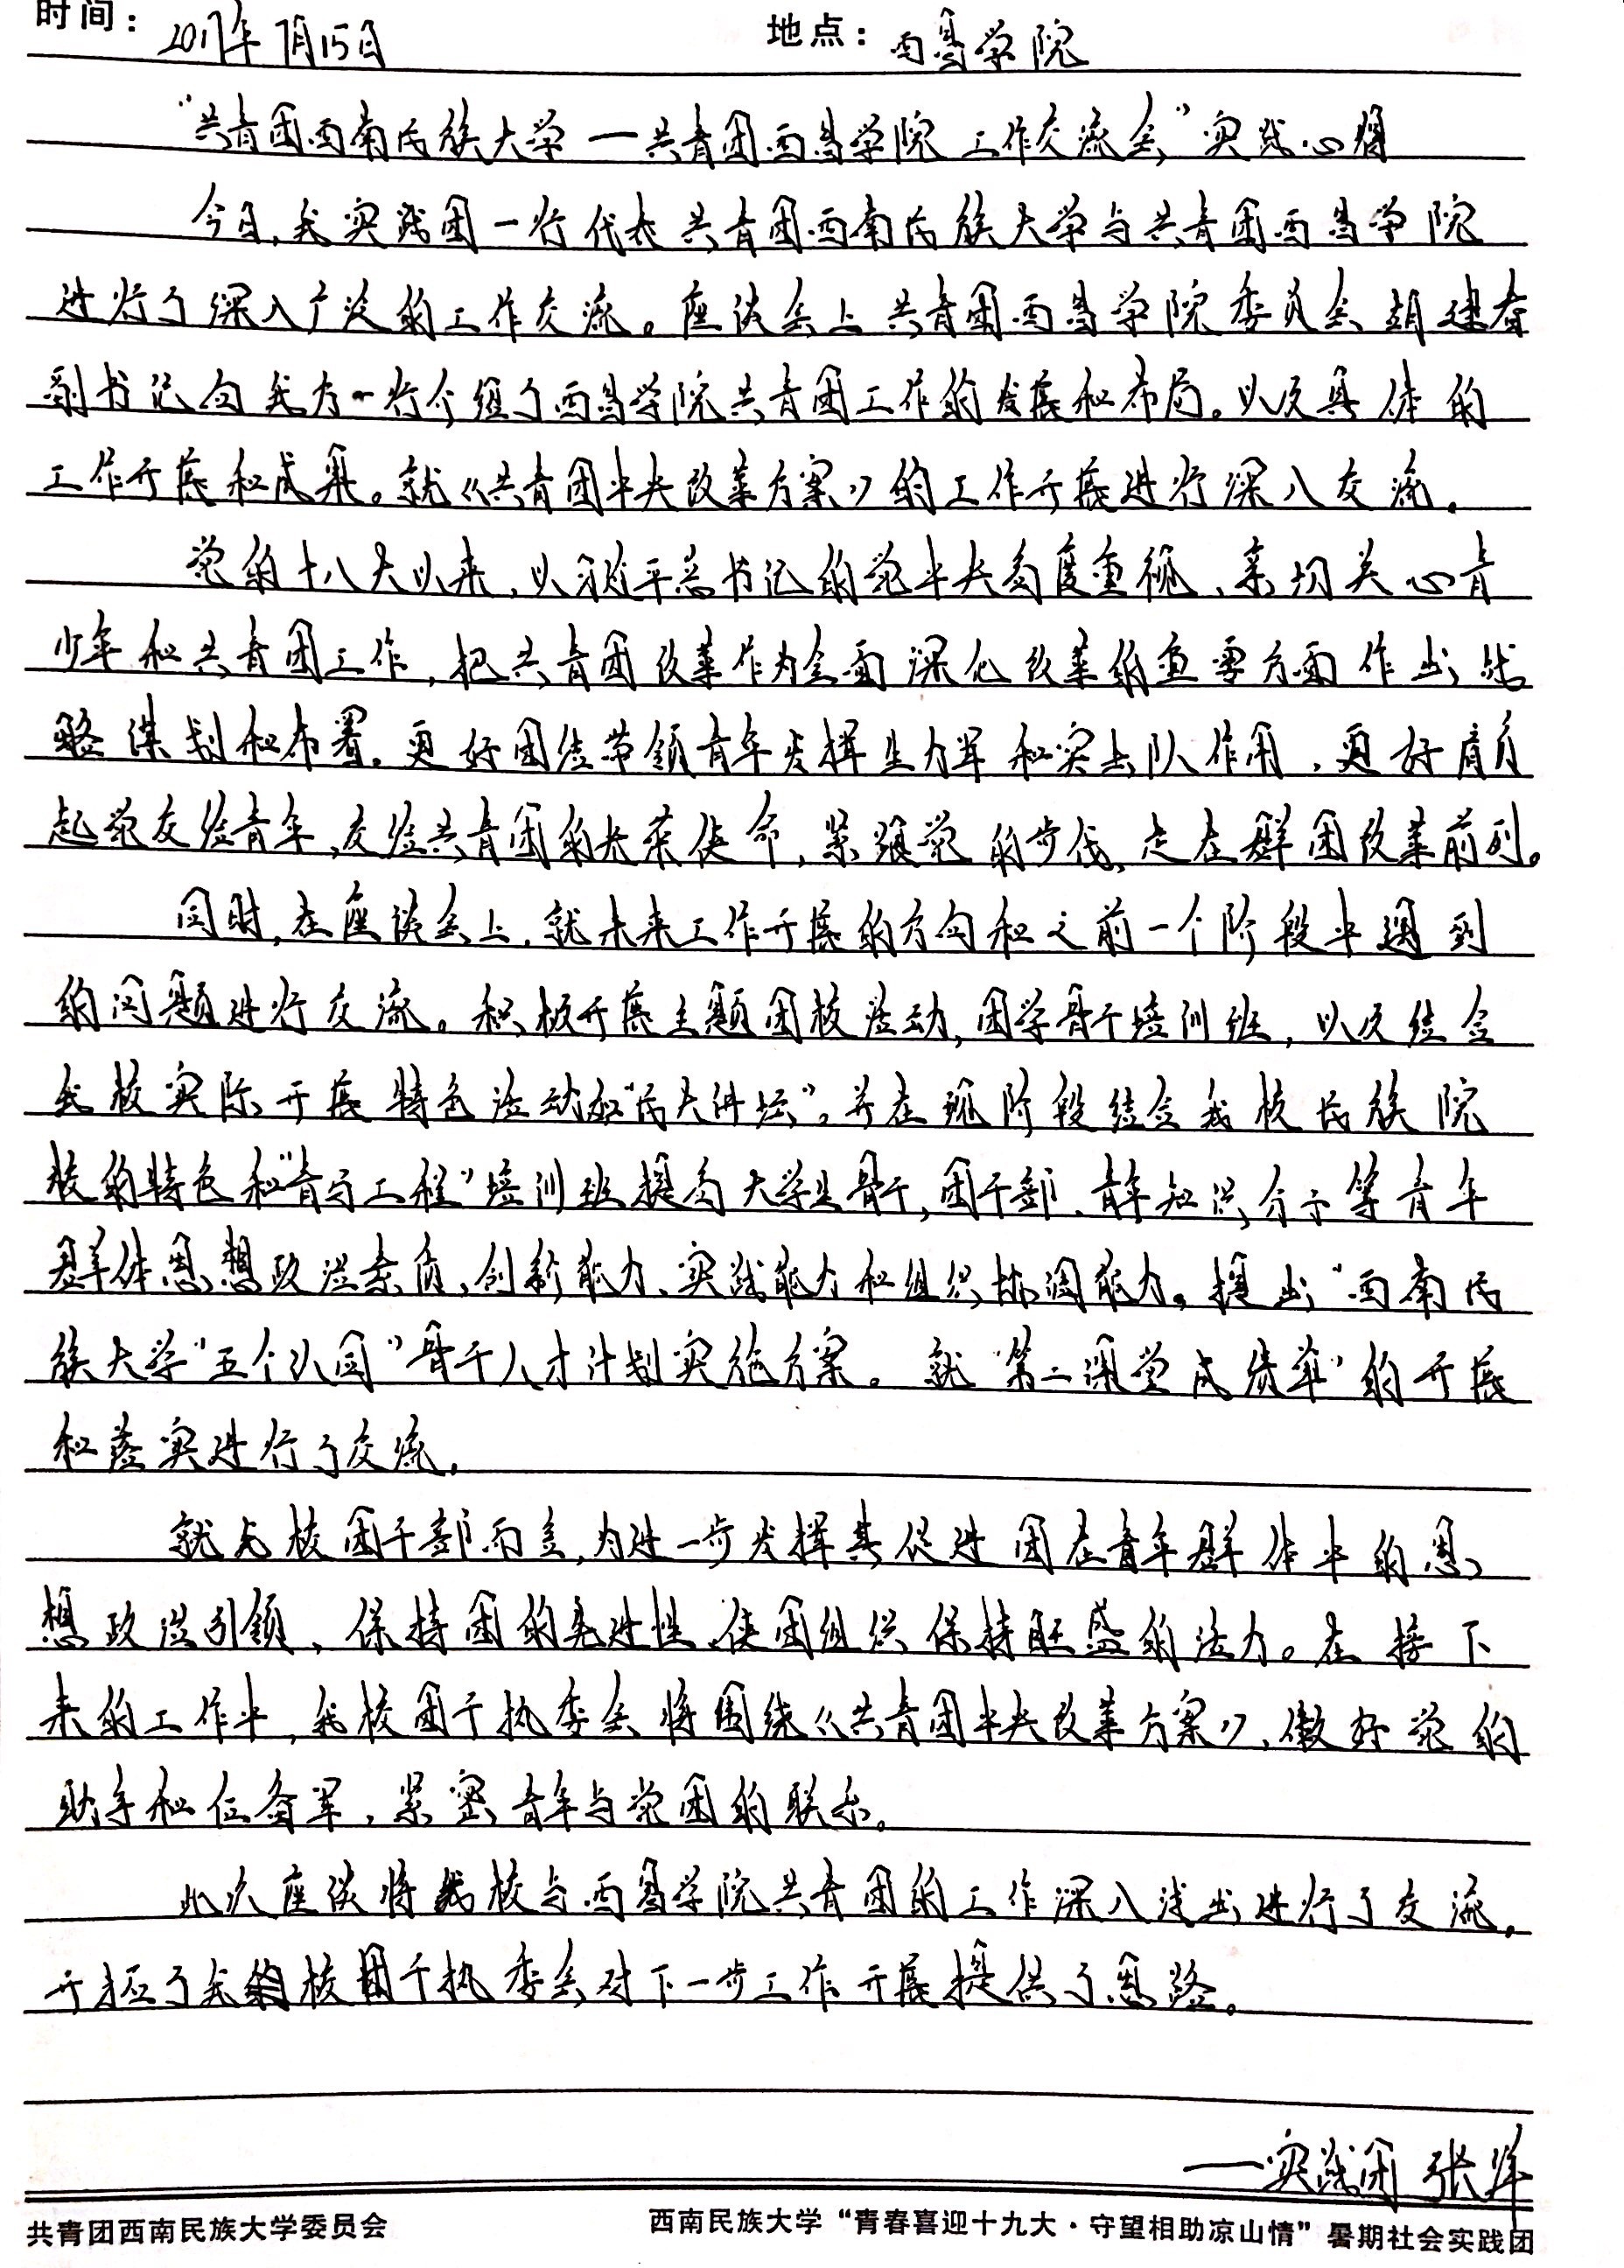 时间：2017年7月15日 地点：西昌学院
“共青团西南民族大学—共青团西昌学院工作交流会”实践心得
今日，我实践团一行代表共青团西南民族大学与共青团西昌学院
进行了深入广泛的工作交流。座谈会上共青团西昌学院委员会胡建春
副书记向我方一行介绍了西昌学院共青团工作的发展和布局。以及具体的
工作开展和成果。就《共青团中央改革方案》的工作开展进行深入交流。
党的十八大以来，以习近平总书记的党中央高度重视、亲切关心青
少年和共青团工作，把共青团改革作为全面深化改革的重要方面作出战
略谋划和布署。更好团结带领青年发挥生力军和突击队作用，更好肩负
起党交给青年、交给共青团的光荣使命，紧跟党的步伐、走在群团改革前列。
同时，在座谈会上，就未来工作开展的方向和之前一个阶段中遇到
的问题进行交流。积极开展主题团校活动，团学骨干培训班，以及结合
我校实际开展特色活动如“民大讲坛”。并在现阶段结合我校民族院
校的特色和“青马工程”培训班提高大学生骨干，团干部、青年知识分子等青年
群体思想政治素质、创新能力、实践能力和组织协调能力。提出“西南民
族大学“五个认同”骨干人才计划实施方案。就“第二课堂成绩单”的开展
和落实进行了交流。
就我校团干部而言，为进一步发挥其促进团在青年群体中的思
想政治引领，保持团的先进性、使团组织保持旺盛的活力。在接下
来的工作中，我校团干执委会将围绕《共青团中央改革方案》，做好党的
助手和后备军，紧密青年与党团的联系。
此次座谈将我校与西昌学院共青团的工作深入浅出进行了交流，
开拓了我校团干执委会对下一步工作开展提供了思路。
——实践团 张军
共青团西南民族大学委员会 西南民族大学“青春喜迎十九大·守望相助凉山情”暑期社会实践团